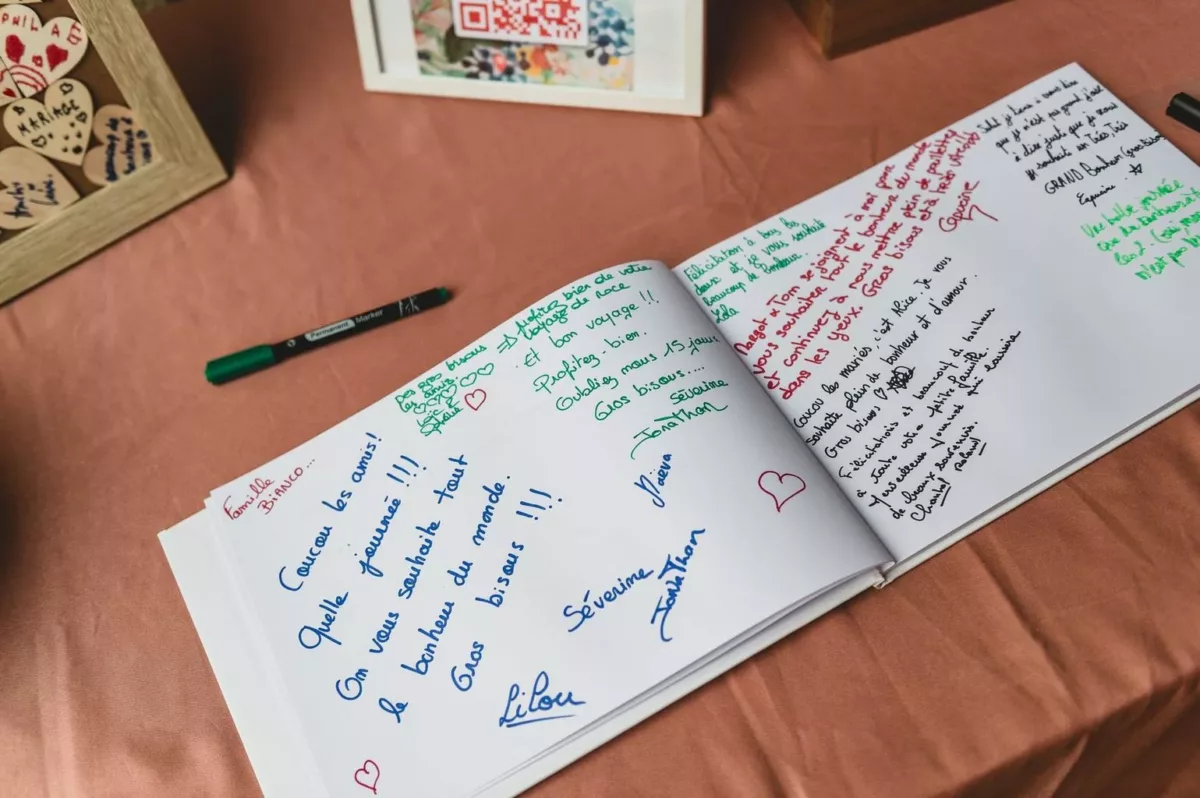 PHILAE
MARIAGE
Permanent Marker
Famille
BIANCO...
Coucou les amis!
Quelle journée!!!
On vous souhaite tout
le bonheur du monde.
Gros bisous!!!
LiLou
Séverine
JonaThan
Maëva
Des gros bisous
les amis.
=> Profitez bien de votre
voyage de noce
Et bon voyage!!
Profitez-bien.
Oubliez nous 15 jours
Gros bisous....
Séverine
JonaThan
Félicitation à tous les
deux et je vous souhaite
beaucoup de bonheur.
Margot & Tom se joignent à moi pour
vous souhaiter tout le bonheur du monde
et continuez à nous mettre plein de paillettes
dans les yeux. Gros bisous et à très vite!!!
Capucine
Coucou les mariés, c'est Alice. Je vous
souhaite plein de bonheur et d'amour.
Gros bisous
Félicitations et beaucoup de bonheur
à toute votre petite famille.
Merveilleuse journée qui laissera
de beaux souvenirs.
Chantal Roland
Salut je tiens à vous dire
que je n'est pas grand chose
à dire juste que je vous
souhaite un Très, Très
GRAND Bonheur
Une belle journée
que du bonheur
n'est pas